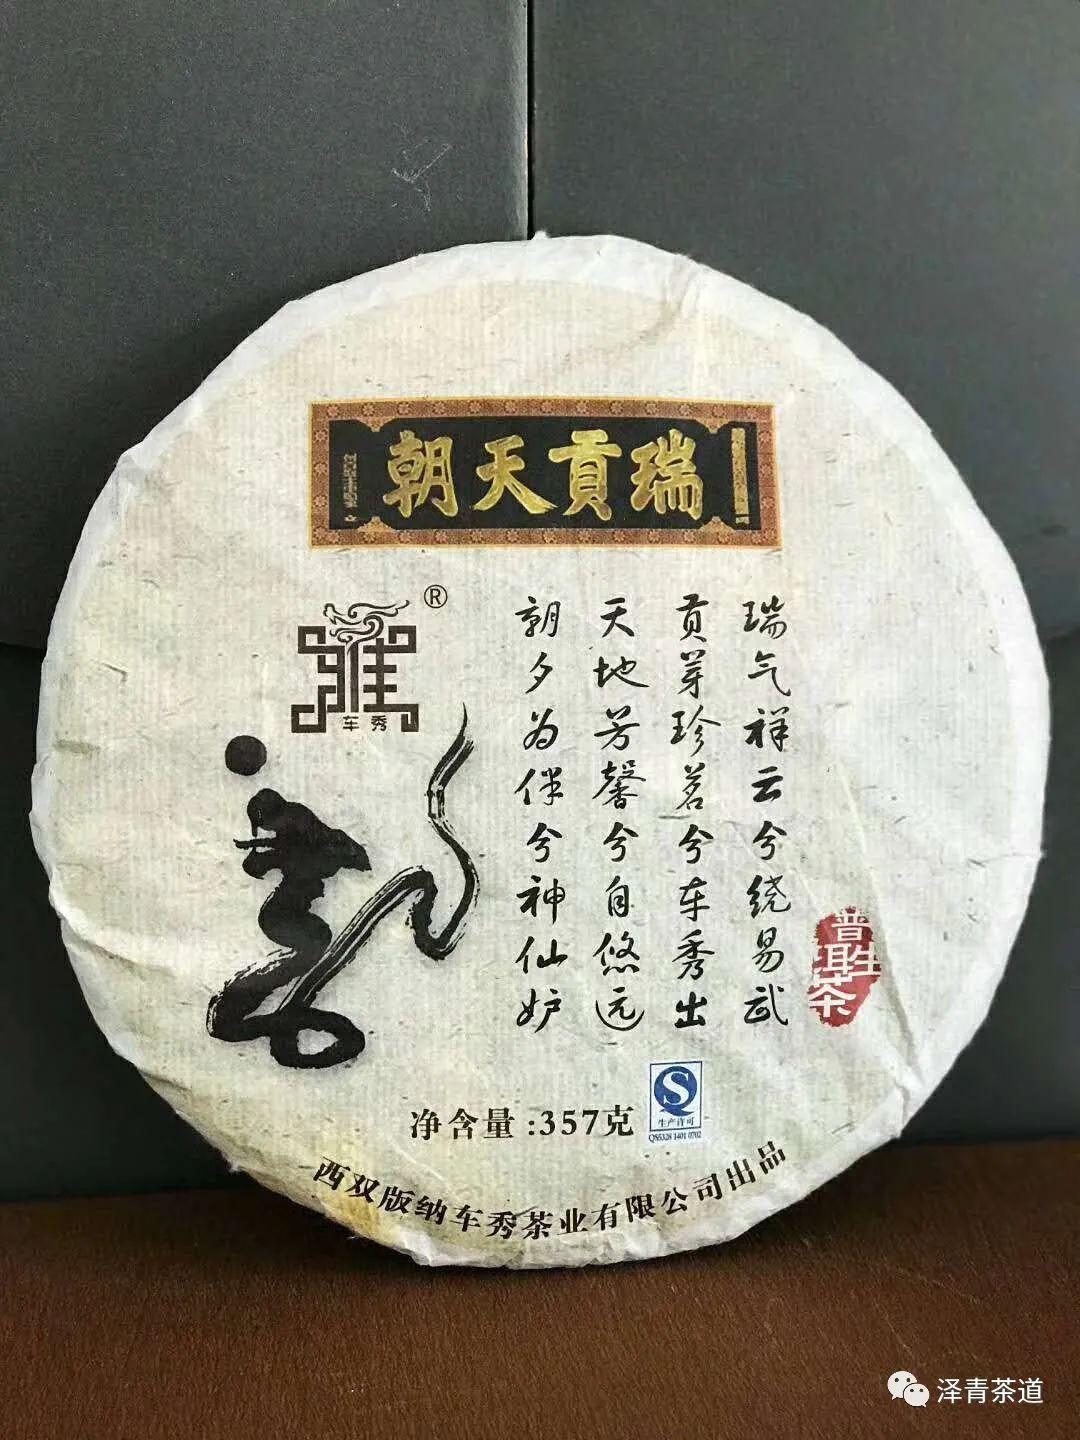 瑞貢天朝
®
车秀
瑞气祥云兮绕易武
贡芽珍茗兮车秀出
天地芳馨兮自悠远
朝夕为伴兮神仙妒
普洱生茶
净含量:357克
生产许可
QS5328 1401 0702
西双版纳车秀茶业有限公司出品
泽青茶道